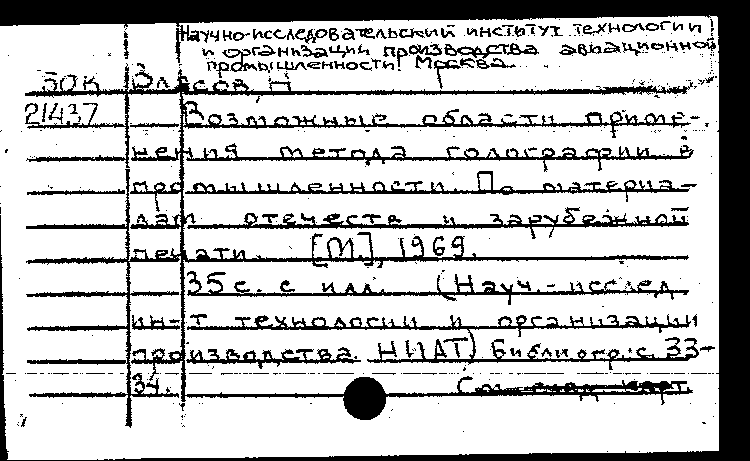 Научно-исследовательский институт технологии
и организации производства авиационной
промышленности. Москва.
30К Власов, Н
21437 Возможные области приме-
нения метода голографии в
промышленности. По материа-
лам отечеств и зарубежной
печати. [М.], 1969.
35 с. с илл. (Науч.-исслед.
ин-т технологии и организации
производства. НИАТ) Библиогр.: с. 33-
34.
См.